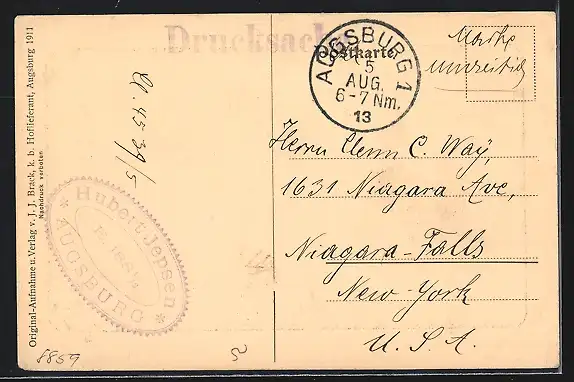 Drucksache
Postkarte
AUGSBURG 1
5
AUG.
6-7 Nm.
13
Marke
Herrn Glenn C. Way,
1631 Niagara Ave,
Niagara-Falls
New-York
U. S. A.
Original-Aufnahme u. Verlag v. J. J. Brack, k. b. Hoflieferant, Augsburg 1911
Nachdruck verboten.
* Hubert Jensen *
AUGSBURG
8859